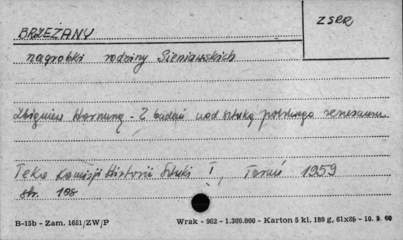 ZSRR
BRZEŻANY
nagrobki rodziny Sieniawskich
Zbigniew Hornung - Z badań nad sztuką polskiego renesansu.
Teka Komisji Historii Sztuki I, Toruń 1959
str. 106
B-15b - Zam. 1681/ZW/P Wrak - 962 - 1.360.000 - Karton 5 kl. 180 g, 61x86 - 10. 9. 60